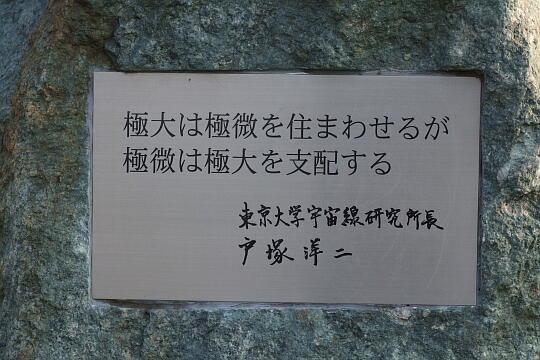 極大は極微を住まわせるが
極微は極大を支配する
東京大学宇宙線研究所長
戸塚洋二